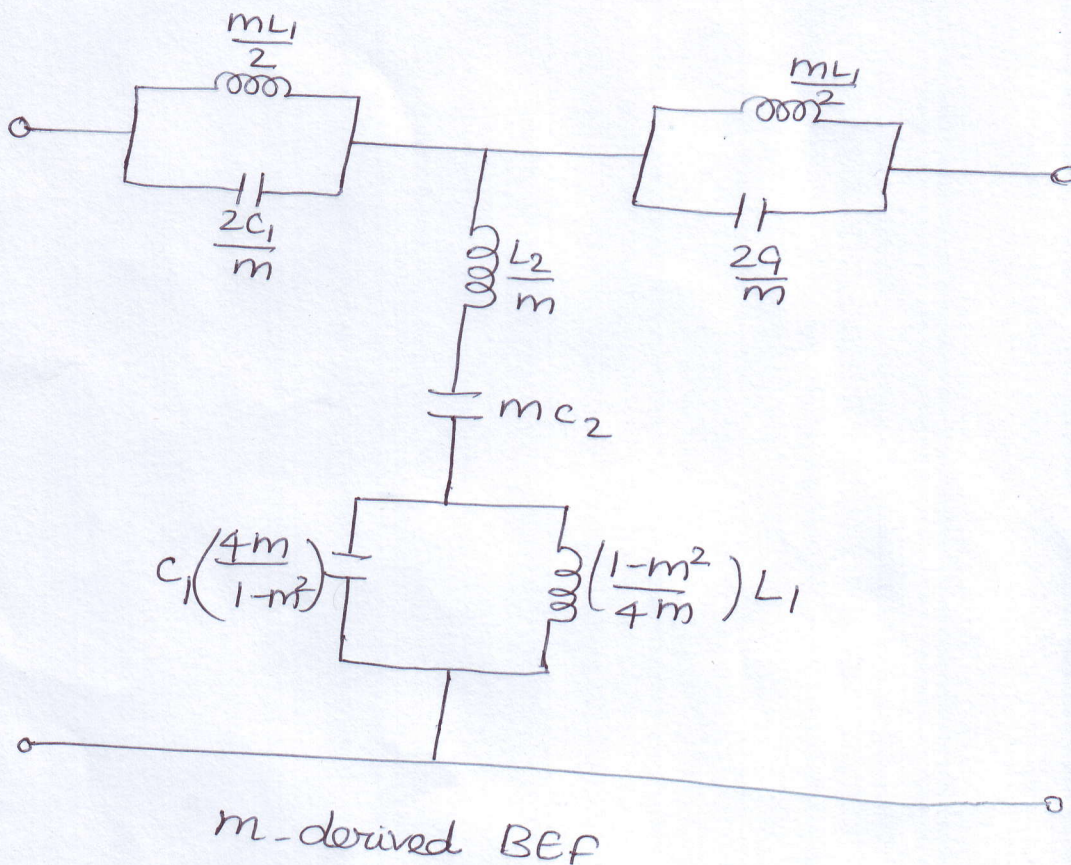 mL₁/2
mL₁/2
2C₁/m
2C₁/m
L₂/m
mC₂
C₁(4m/1-m²)
(1-m²/4m)L₁
m-derived BEF